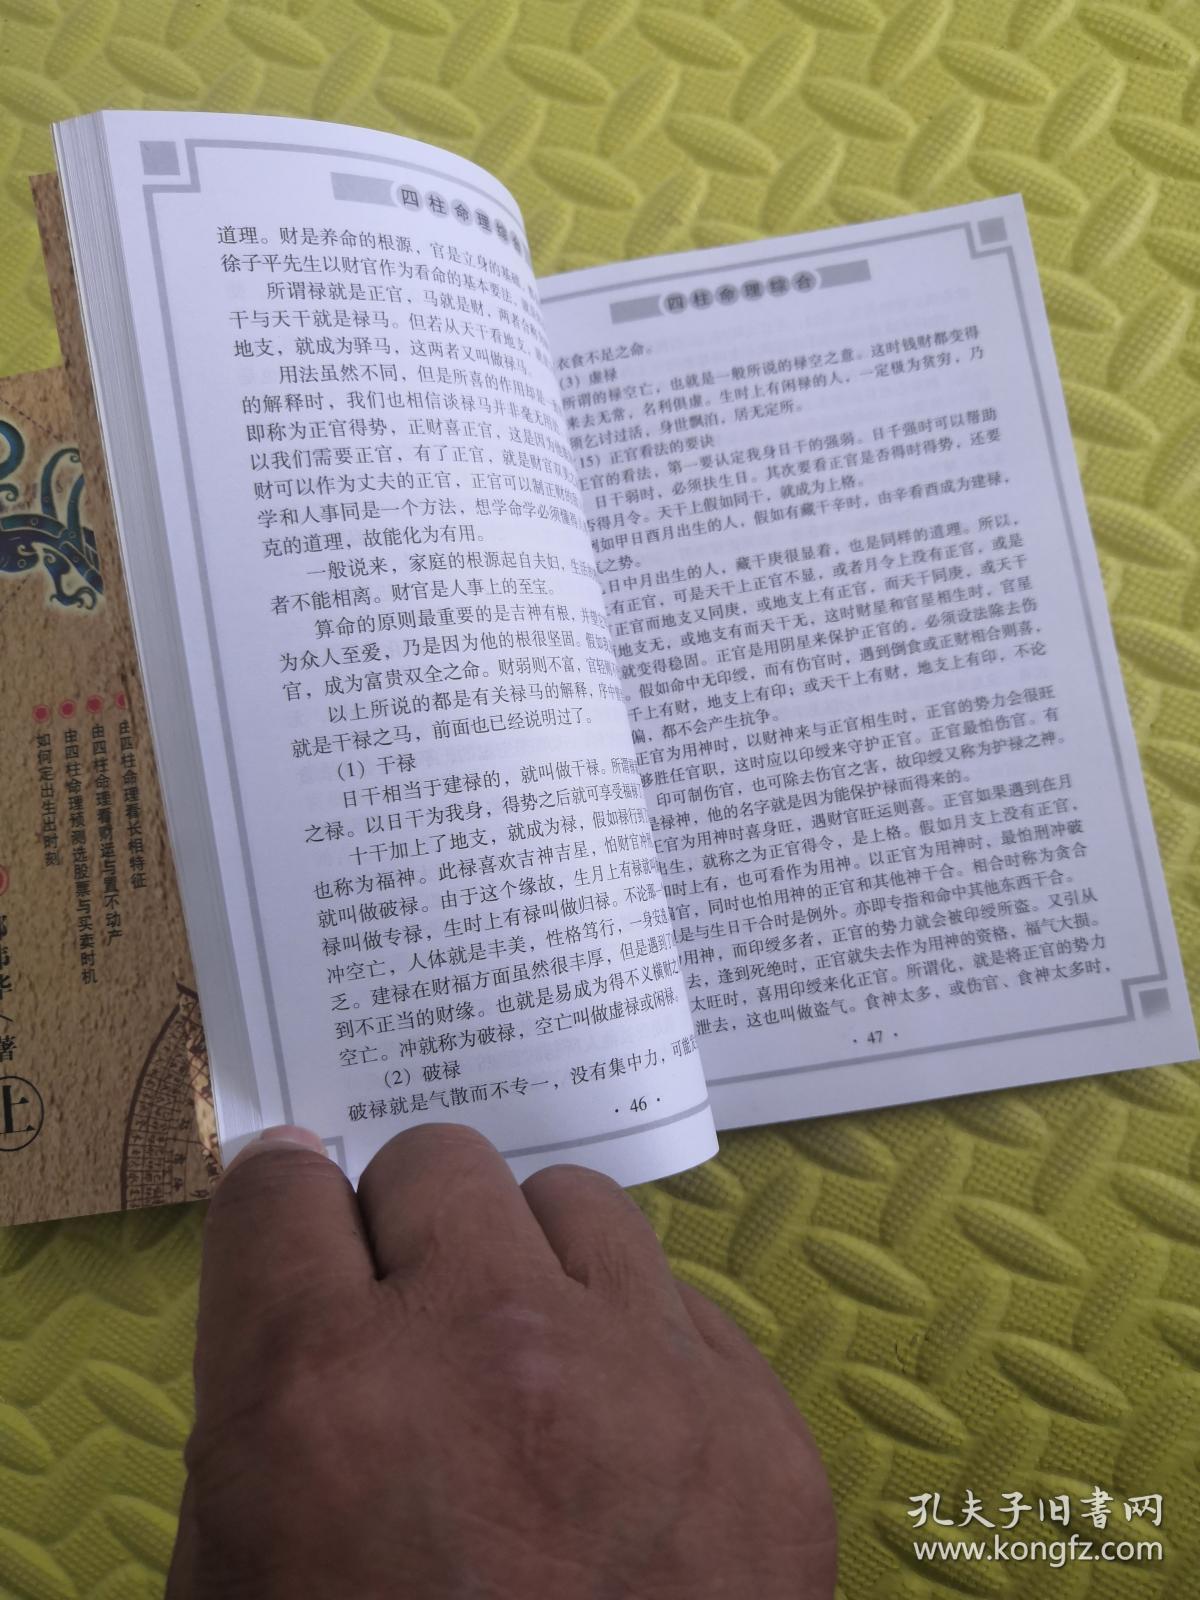 四柱命理综合
道理。财是养命的根源，官是立身的基础，
徐子平先生以财官作为看命的基本要法，
所谓禄就是正官，马就是财，两者合称
干与天干就是禄马。但若从天干看地支，
地支，就成为驿马，这两者又叫做禄马。
用法虽然不同，但是所喜的作用却是一
的解释时，我们也相信谈禄马并非毫无
即称为正官得势，正财喜正官，这是因为
以我们需要正官，有了正官，就是财官双
财可以作为丈夫的正官，正官可以制正财的
学和人事同是一个方法，想学命学必须懂得
克的道理，故能化为有用。
一般说来，家庭的根源起自夫妇，生活
者不能相离。财官是人事上的至宝。
算命的原则最重要的是吉神有根，并
为众人至爱，乃是因为他的根很坚固。假如
官，成为富贵双全之命。财弱则不富，官轻则
以上所说的都是有关禄马的解释，序中
就是干禄之马，前面也已经说明过了。
（1）干禄
日干相当于建禄的，就叫做干禄。所谓
之禄。以日干为我身，得势之后就可享受福禄
十干加上了地支，就成为禄，假如禄行到
也称为福神。此禄喜欢吉神吉星，怕财官冲
就叫做破禄。由于这个缘故，生月上有禄就叫
禄叫做专禄，生时上有禄叫做归禄。不论那一
冲空亡，人体就是丰美，性格笃行，一身安逸
乏。建禄在财福方面虽然很丰厚，但是遇到了
到不正当的财缘。也就是易成为得不义横财之
空亡。冲就称为破禄，空亡叫做虚禄或闲禄。
（2）破禄
破禄就是气散而不专一，没有集中力，可能
·46·
四柱命理综合
衣食不足之命。
（3）虚禄
所谓的禄空亡，也就是一般所说的禄空之意。这时钱财都变得
来去无常，名利俱虚。生时上有闲禄的人，一定极为贫穷，乃
须乞讨过活，身世飘泊，居无定所。
15）正官看法的要诀
正官的看法，第一要认定我身日干的强弱。日干强时可以帮助
日干弱时，必须扶生日。其次要看正官是否得时得势，还要
否得月令。天干上假如同干，就成为上格。
例如甲日酉月出生的人，假如有藏干辛时，由辛看酉成为建禄，
之势。
日中月出生的人，藏干庚很显着，也是同样的道理。所以，
上有正官，可是天干上正官不显，或者月令上没有正官，或是
正官而地支又同庚，或地支上有正官，而天干同庚，或天干
地支无，或地支有而天干无，这时财星和官星相生时，官星
就变得稳固。正官是用阴星来保护正官的，必须设法除去伤
。假如命中无印绶，而有伤官时，遇到倒食或正财相合则喜，
干上有财，地支上有印；或天干上有财，地支上有印，不论
偏，都不会产生抗争。
正官为用神时，以财神来与正官相生时，正官的势力会很旺
够胜任官职，这时应以印绶来守护正官。正官最怕伤官。有
印可制伤官，也可除去伤官之害，故印绶又称为护禄之神。
是禄神，他的名字就是因为能保护禄而得来的。
正官为用神时喜身旺，遇财官旺运则喜。正官如果遇到在月
出生，就称之为正官得令，是上格。假如月支上没有正官，
和时上有，也可看作为用神。以正官为用神时，最怕刑冲破
官，同时也怕用神的正官和其他神干合。相合时称为贪合
是与生日干合时是例外。亦即专指和命中其他东西干合。
用神，而印绶多者，正官的势力就会被印绶所盗。又引从
去，逢到死绝时，正官就失去作为用神的资格，福气大损。
太旺时，喜用印绶来化正官。所谓化，就是将正官的势力
泄去，这也叫做盗气。食神太多，或伤官、食神太多时，
·47·
由四柱命理看长相特征
由四柱命理看财运与置不动产
由四柱命理预测选股票与买卖时机
如何定出生出时刻
著
上
孔夫子旧书网
www.kongfz.com